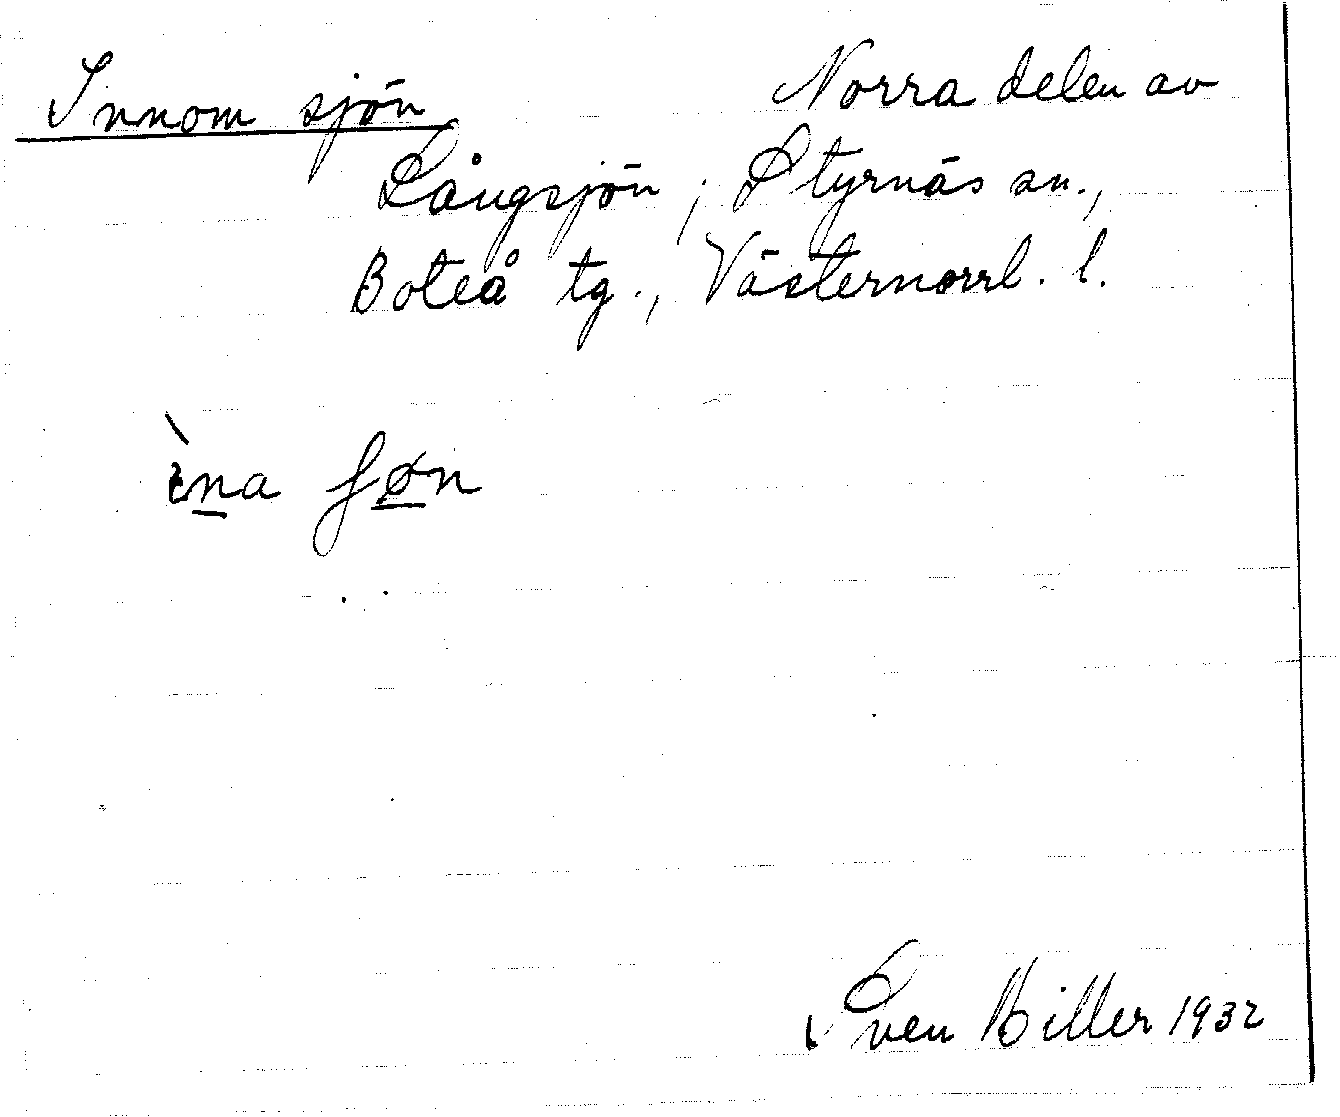 Innom sjön Norra delen av
Långsjön, Styrnäs sn.,
Boteå tg., Västernorrl. l.
ʃøn
Sven Hiller 1932